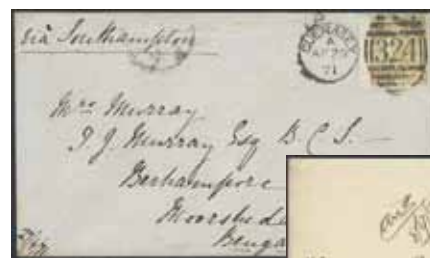 via Southampton
GUERNSEY
A
71
324
Mrs Murray
J. J. Murray Esq B C S.
Berhampore
Moorsheda
Benga